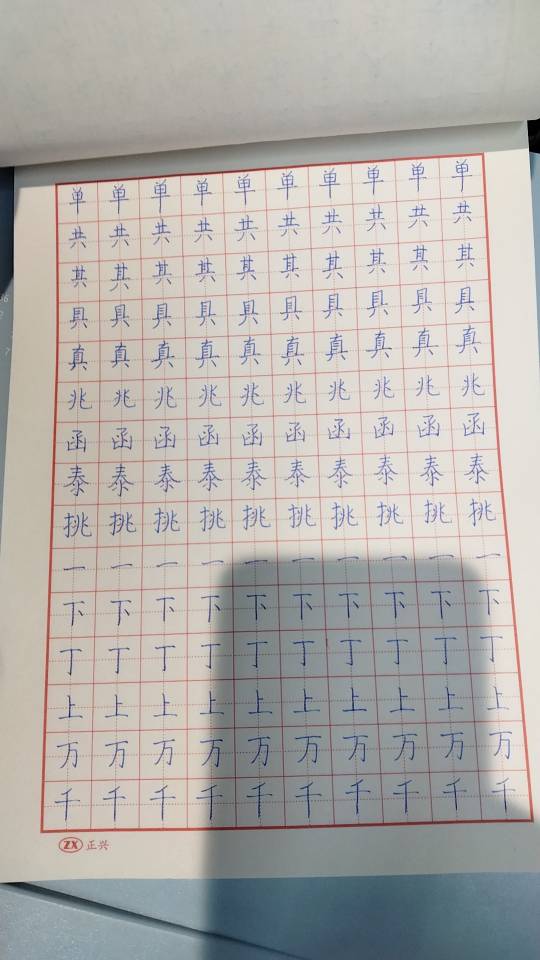 单单单单单单单单单单
共共共共共共共共共共
其其其其其其其其其其
具具具具具具具具具具
真真真真真真真真真真
兆兆兆兆兆兆兆兆兆兆
函函函函函函函函函函
泰泰泰泰泰泰泰泰泰泰
挑挑挑挑挑挑挑挑挑挑
一一一一一一一一一一
下下下下下下下下下下
丁丁丁丁丁丁丁丁丁丁
上上上上上上上上上上
万万万万万万万万万万
千千千千千千千千千千
ZX 正兴